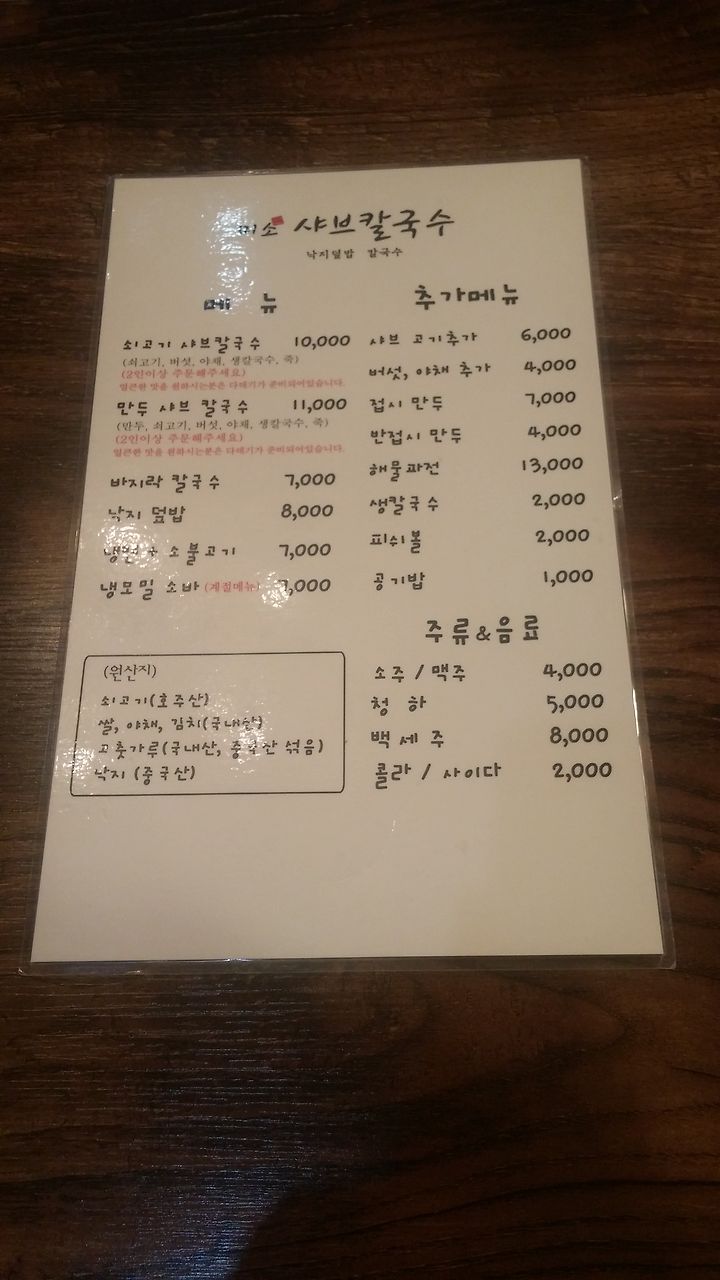 미소 샤브칼국수
낙지덮밥 칼국수
메 뉴
쇠고기 샤브칼국수 10,000
(쇠고기, 버섯, 야채, 생칼국수, 죽)
(2인이상 주문해주세요)
얼큰한 맛을 원하시는분은 다대기가 준비되어있습니다.
만두 샤브 칼국수 11,000
(만두, 쇠고기, 버섯, 야채, 생칼국수, 죽)
(2인이상 주문해주세요)
얼큰한 맛을 원하시는분은 다대기가 준비되어있습니다.
바지락 칼국수 7,000
낙지 덮밥 8,000
냉면 + 소불고기 7,000
냉모밀 소바 (계절메뉴) ,000
(원산지)
쇠고기(호주산)
쌀, 야채, 김치(국내산)
고춧가루(국내산, 중국산 섞음)
낙지 (중국산)
추가메뉴
샤브 고기추가 6,000
버섯, 야채 추가 4,000
접시 만두 7,000
반접시 만두 4,000
해물파전 13,000
생칼국수 2,000
피쉬볼 2,000
공기밥 1,000
주류&음료
소주 / 맥주 4,000
청 하 5,000
백세주 8,000
콜라 / 사이다 2,000